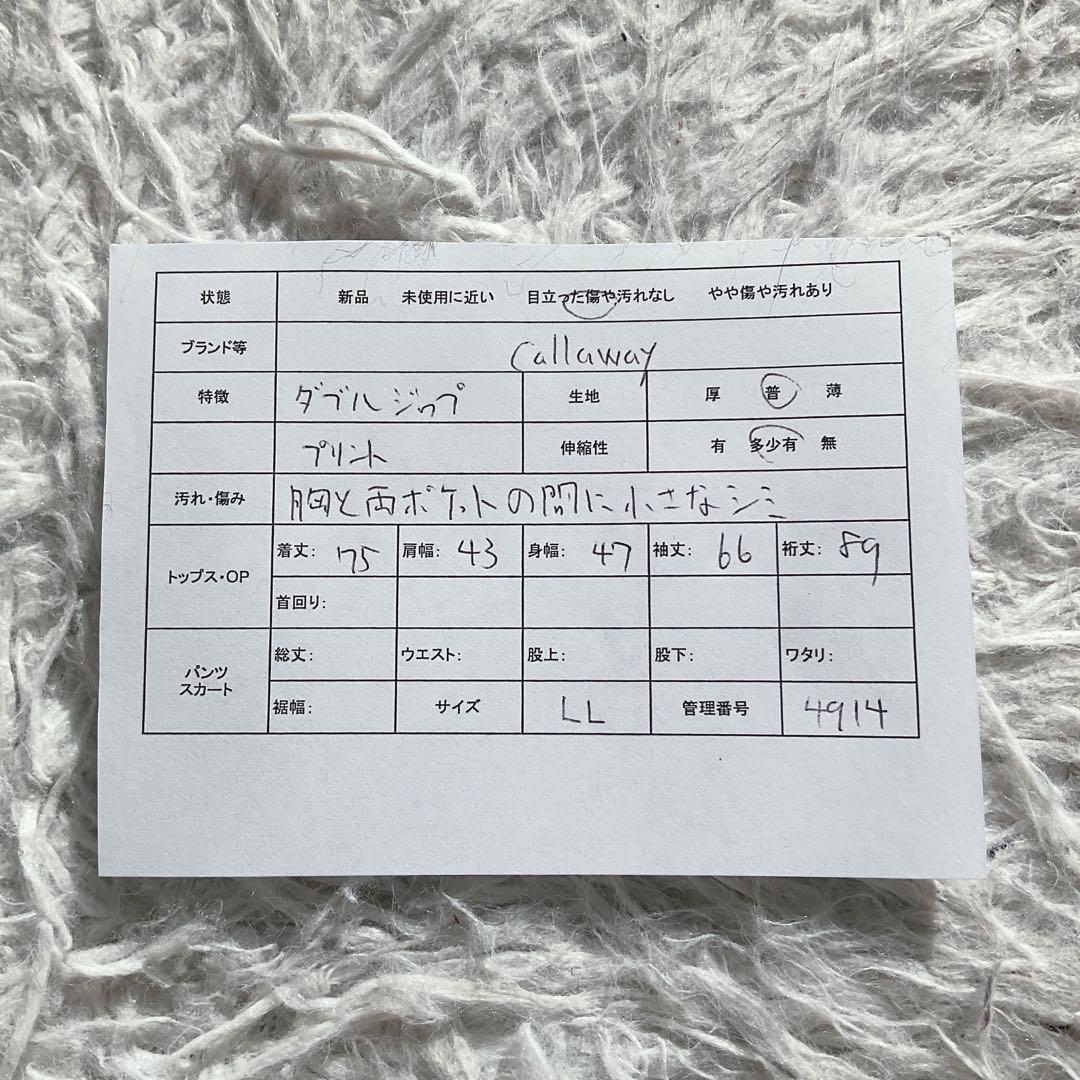 状態 新品 未使用に近い 目立った傷や汚れなし やや傷や汚れあり
ブランド等 Callaway
特徴 ダブルジップ 生地 厚 普 薄
プリント 伸縮性 有 多少有 無
汚れ・傷み 胸と両ポケットの間に小さなシミ
トップス・OP 着丈: 75 肩幅: 43 身幅: 47 袖丈: 66 裄丈: 89
首回り:
パンツ スカート 総丈: ウエスト: 股上: 股下: ワタリ:
裾幅: サイズ LL 管理番号 4914